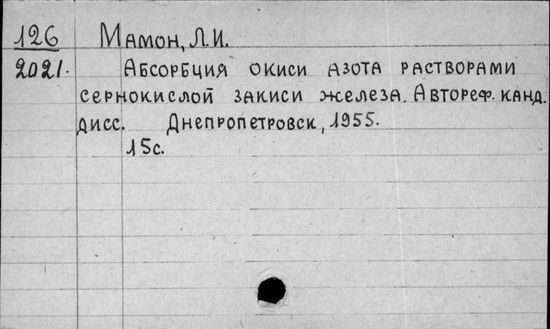 126 Мамон, Л.И.
2021. Абсорбция окиси азота растворами
сернокислой закиси железа. Автореф. канд.
дисс. Днепропетровск, 1955.
15с.